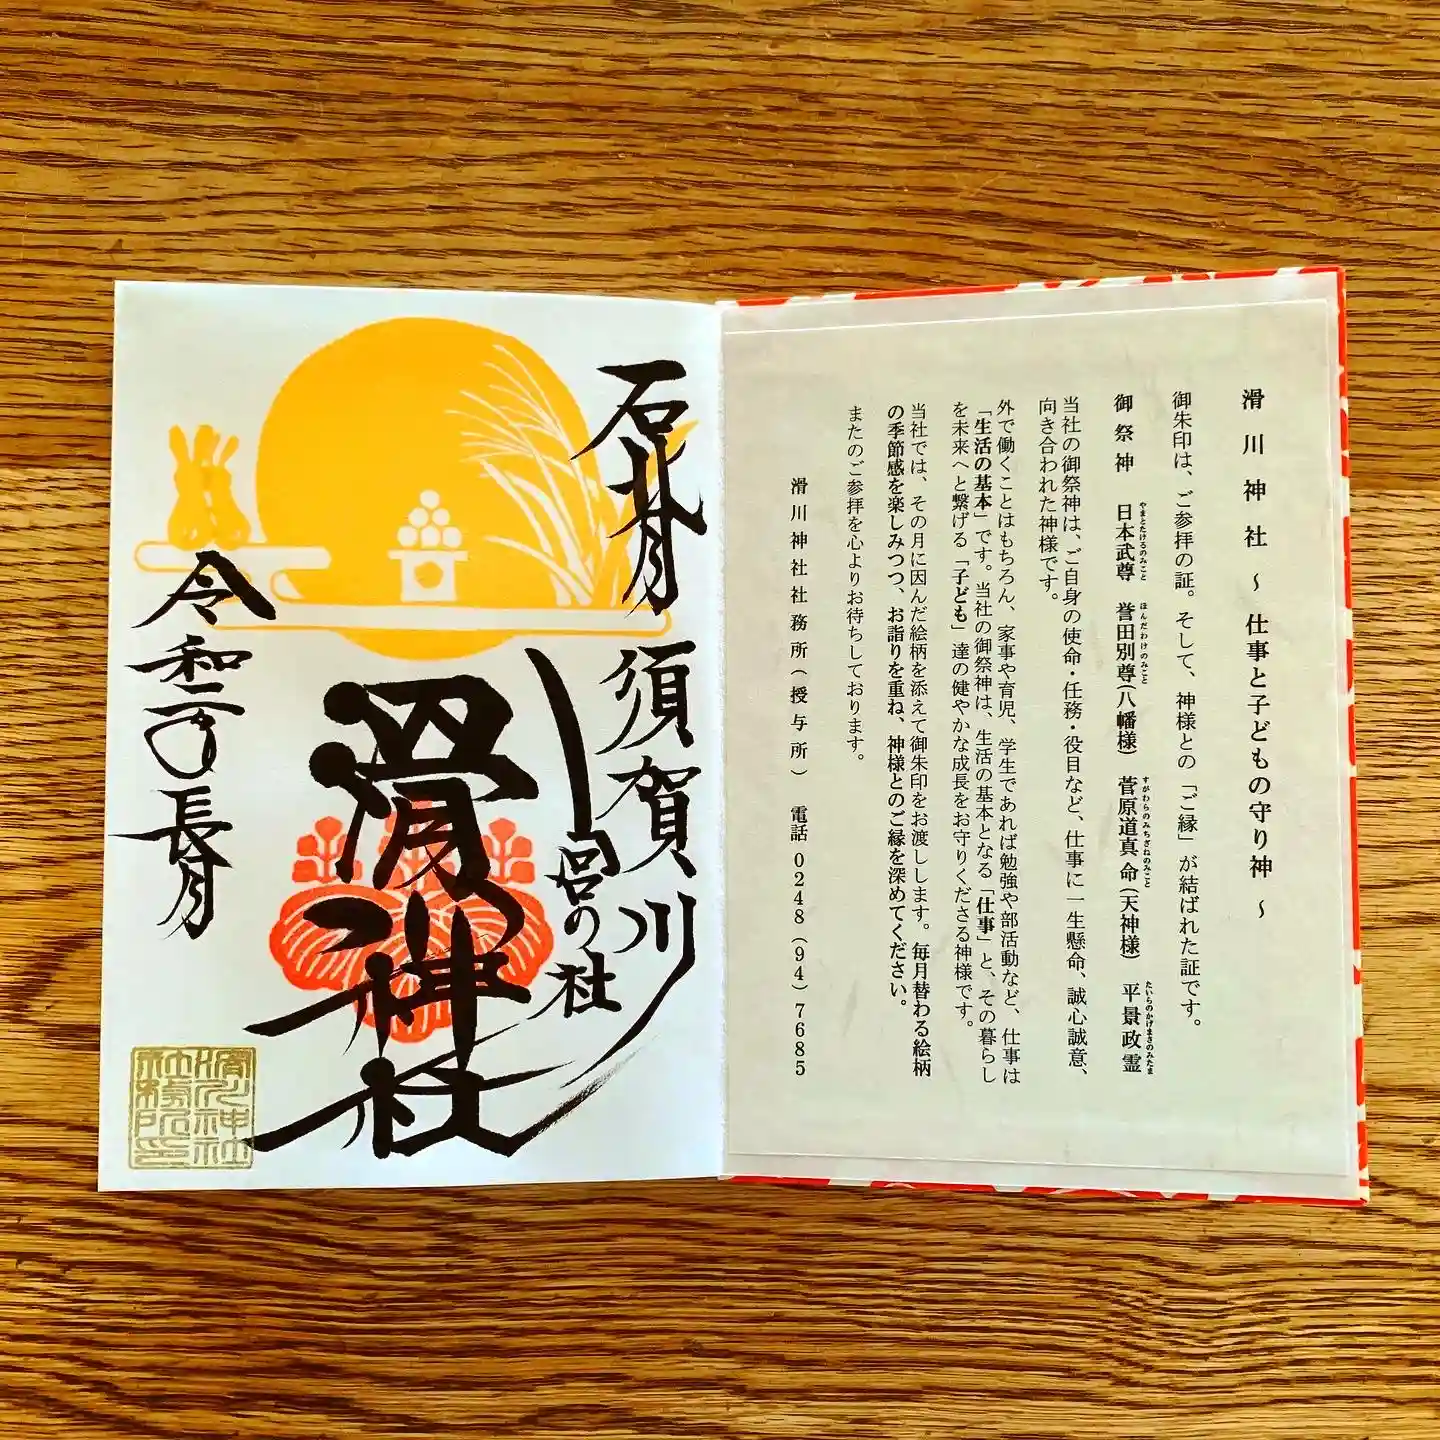 滑川神社 ～ 仕事と子どもの守り神 ～
御朱印は、ご参拝の証。そして、神様との『ご縁』が結ばれた証です。
御祭神 日本武尊 誉田別尊(八幡様) 菅原道真命(天神様) 平景政霊
やまとたけるのみこと ほんだわけのみこと すがわらのみちざねのみこと たいらのかげまさのみたま
当社の御祭神は、ご自身の使命・任務・役目など、仕事に一生懸命、誠心誠意、
向き合われた神様です。
外で働くことはもちろん、家事や育児、学生であれば勉強や部活動など、仕事は
「生活の基本」です。当社の御祭神は、生活の基本となる「仕事」と、その暮らし
を未来へと繋げる「子ども」達の健やかな成長をお守りくださる神様です。
当社では、その月に因んだ絵柄を添えて御朱印をお渡しします。毎月替わる絵柄
の季節感を楽しみつつ、お詣りを重ね、神様とのご縁を深めてください。
またのご参拝を心よりお待ちしております。
滑川神社社務所(授与所) 電話 0248(94)7685
石背
須賀川
宮の社
滑川神社
令和二年長月
滑川神社
社務所印